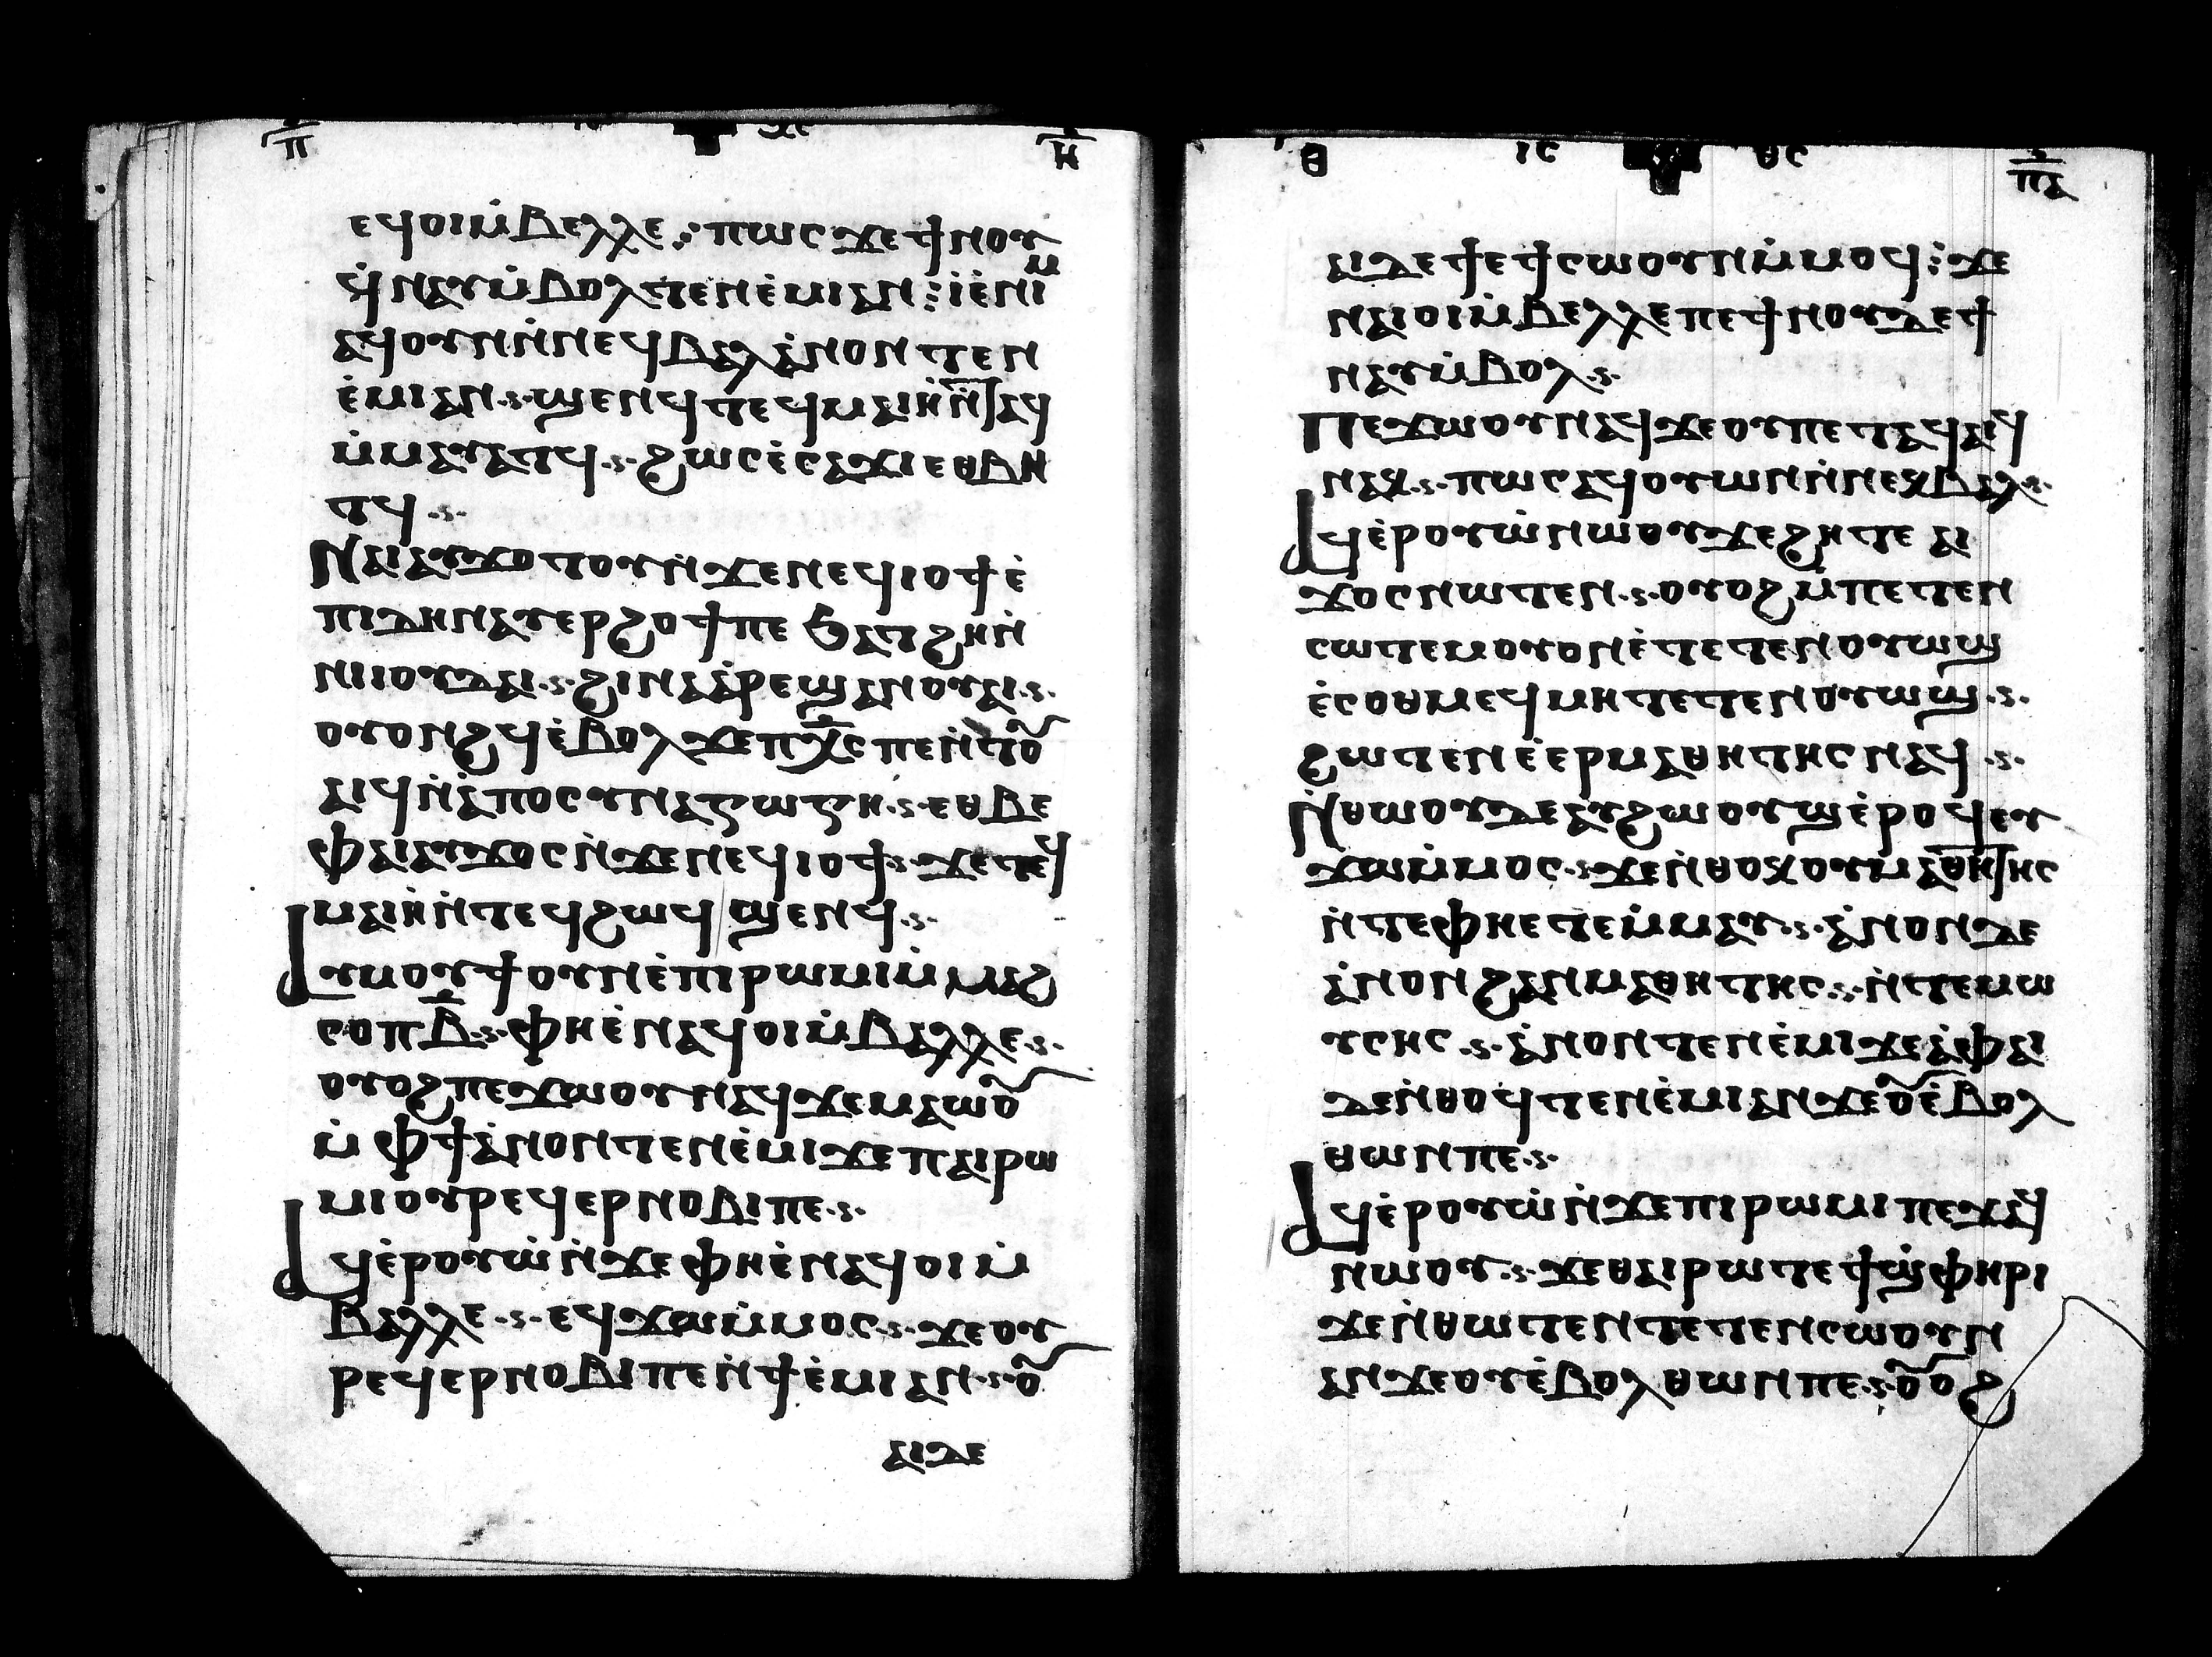 ⲡ ⲓⲥ ⲭⲥ ⲏ
ⲉϥⲟⲓⲙ̇ⲃⲉⲗⲗⲉ ⲡⲱⲥ ϫⲉϯⲛⲟⲩ
ϥ̇ⲛⲁⲩⲙ̇ⲃⲟⲗⲧⲉⲛⲉ̇ⲙⲓⲁⲛ ⲓ̇ⲉ̇ⲛⲓⲙ
ⲁϥⲟⲩⲛⲛ̇ⲛⲉϥⲃⲁⲗⲁ̇ⲛⲟⲛⲧⲉⲛ
ⲉ̇ⲙⲓⲁⲛ ⲋ ϣⲉⲛϥⲧⲉϥⲙⲁⲓⲏⲛ̇ⲧⲁϥ
ⲙ̇ⲙⲁⲩⲁⲧϥ ⲋ ϩⲱⲥⲉ̇ⲥⲁϫⲓⲉⲑⲃⲏ
ⲧϥ ⲋ
ⲛⲁⲓⲁⲩϫⲟⲧⲟⲩⲛ̇ϫⲉⲛⲉϥⲓⲟϯⲉ̇
ⲡⲓⲇⲏⲛⲁⲩⲉⲣϩⲟϯⲡⲉ ϧⲁⲧϩⲏⲛ̇
ⲛⲓⲓⲟⲩⲇⲁⲓ ⲋ ϩⲓⲛⲁⲁ̇ⲣⲉϣⲁⲛⲟⲩⲁⲓ ⲋ
ⲟⲩⲟⲛϩϥⲉ̇ⲃⲟⲗϫⲉⲡⲭ̅ⲥ ⲡⲉⲛ̇ⲧⲟⲩ
ⲁⲓϥⲛ̇ⲁ̇ⲡⲟⲥⲩⲛⲁⲅⲱⲅⲏ ⲋ ⲉⲑⲃⲉ
ⲫⲁⲓⲁⲩϫⲟⲥⲛ̇ϫⲉⲛⲉϥⲓⲟϯ ⲋ ϫⲉⲧⲉϥ
ⲙⲁⲓⲏⲛ̇ⲧⲉϥϩⲱϥ ϣⲉⲛϥ ⲋ
ⲁⲩⲙⲟⲩϯⲟⲩⲛⲉ̇ⲡⲓⲣⲱⲙⲓⲙ̇ⲙⲁϩ
ⲥⲟⲡⲃ̅ ⲋ ⲫⲏⲉ̇ⲛⲁϥⲟⲓⲙ̇ⲃⲁⲗⲗⲉ ⲋ
ⲟⲩⲟϩⲡⲉϫⲱⲟⲩⲛⲁϥϫⲉⲙⲁⲱⲟⲩ
ⲙ̇ ⲫϯⲁ̇ⲛⲟⲛⲧⲉⲛⲉ̇ⲙⲓϫⲉⲡⲁⲓⲣⲱ
ⲙⲓⲟⲩⲣⲉϥⲉⲣⲛⲟⲃⲓⲡⲉ ⲋ
ⲁϥⲉ̇ⲣⲟⲩⲱ̇ⲛ̇ϫⲉⲫⲏⲉ̇ⲛⲁϥⲟⲓⲙ̇
ⲃⲁⲗⲗⲉ ⲋ ⲉϥϫⲱⲙ̇ⲙⲟⲥ ⲋ ϫⲉⲟⲩ
ⲣⲉϥⲉⲣⲛⲟⲃⲓⲡⲉⲛ̇ϯⲉ̇ⲙⲓⲁⲛ ⲋ ⲟⲩ
ⲁⲓⲇⲉ
ⲑ ⲓⲥ ⲑⲥ ⲡⲁ
ⲁⲓⲇⲉϯⲉϯⲥⲱⲟⲩⲛⲙ̇ⲙⲟϥ ϫⲉ
ⲛⲁⲓⲟⲓⲙ̇ⲃⲉⲗⲗⲉⲡⲉϯⲛⲟⲩⲇⲉϯ
ⲛⲁⲩⲙ̇ⲃⲟⲗ ⲋ
ⲡⲉϫⲱⲟⲩⲛⲁϥϫⲉⲟⲩⲡⲉⲧⲁϥⲁⲓϥ
ⲛⲁⲕ ⲋ ⲡⲱⲥⲁϥⲟⲩⲱⲛⲛ̇ⲛⲉⲕⲃⲁⲗ ⲋ
ⲁϥⲉ̇ⲣⲟⲩⲱ̇ⲛⲱⲟⲩϫⲉϩⲏⲧⲉ ⲁⲓ
ϫⲟⲥⲛⲱⲧⲉⲛ ⲋ ⲟⲩⲟϩⲙ̇ⲡⲉⲧⲉⲛ
ⲥⲱⲧⲉⲙⲟⲩⲟⲛⲉ̇ⲧⲉⲧⲉⲛⲟⲩⲱϣ
ⲉ̇ⲥⲟⲑⲙⲉϥⲙⲏⲧⲉⲧⲉⲛⲟⲩⲱϣ ⲋ
ϩⲱⲧⲉⲛⲉ̇ⲉⲣⲙⲁⲑⲏⲧⲏⲥⲛⲁϥ ⲋ
ⲛ̇ⲑⲱⲟⲩⲇⲉⲁⲩϩⲱⲟⲩϣⲉ̇ⲣⲟϥⲉⲩ
ϫⲱⲙ̇ⲙⲟⲥ ⲋ ϫⲉⲛ̇ⲑⲟⲕⲟⲩⲙⲁⲑⲏⲧⲏⲥ
ⲛ̇ⲧⲉⲫⲏⲉⲧⲉⲙ̇ⲙⲁⲩ ⲋ ⲁ̇ⲛⲟⲛⲇⲉ
ⲁ̇ⲛⲟⲛϩⲁⲛⲙⲁⲑⲏⲧⲏⲥ ⲋ ⲛ̇ⲧⲉⲙⲱ
ⲩⲥⲏⲥ ⲋ ⲁ̇ⲛⲟⲛⲧⲉⲛⲉ̇ⲙⲓϫⲉⲁ̇ⲫⲁⲓ
ⲇⲉⲛ̇ⲑⲟϥⲧⲉⲛⲉ̇ⲙⲓⲁⲛϫⲉⲟⲩⲉ̇ⲃⲟⲗ
ⲑⲱⲛⲡⲉ ⲋ
ⲁϥⲉ̇ⲣⲟⲩⲱ̇ⲛ̇ϫⲉⲡⲓⲣⲱⲙⲓⲡⲉϫⲁϥ
ⲛⲱⲟⲩ ⲋ ϫⲉⲑⲁⲓⲣⲱⲧⲉϯϣ̇ⲫⲏⲣⲓ
ϫⲉⲛ̇ⲑⲱⲧⲉⲛⲧⲉⲧⲉⲛⲥⲱⲟⲩⲛ
ⲁⲛϫⲉⲟⲩⲉ̇ⲃⲟⲗⲑⲱⲛⲡⲉ ⲋ ⲟⲩⲟϩ